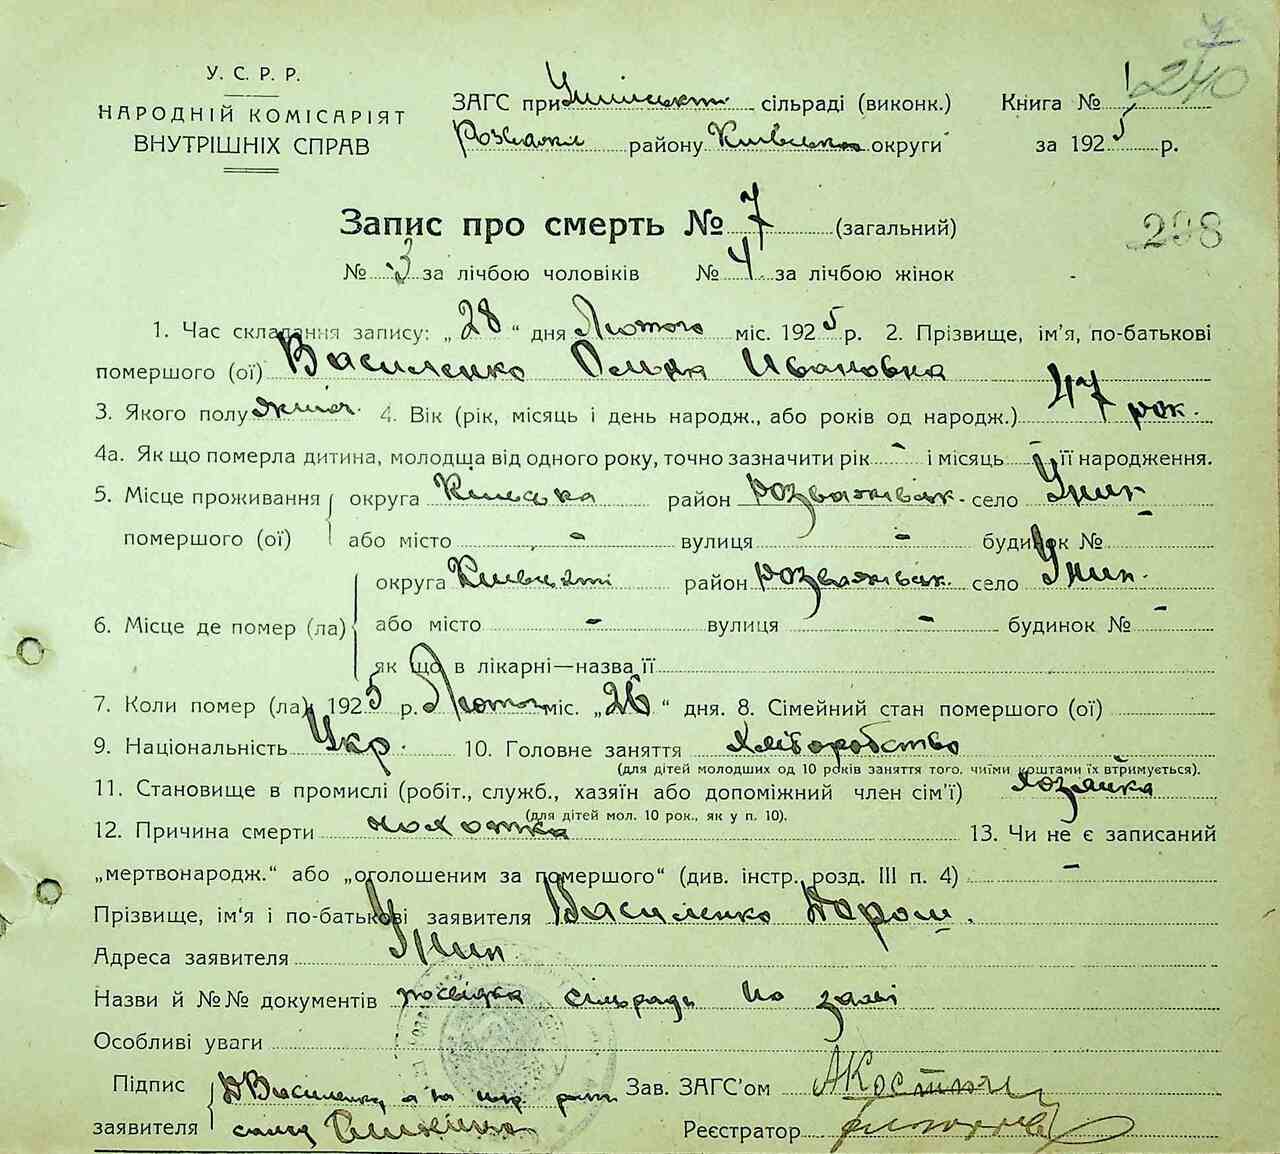 У. С. Р. Р.
НАРОДНІЙ КОМІСАРІЯТ
ВНУТРІШНІХ СПРАВ
ЗАГС при сільраді (виконк.)
району Київська округи
Книга № 1
за 1925 р.
240
Запис про смерть № 7 (загальний)
298
№ 3 за лічбою чоловіків № 4 за лічбою жінок
1. Час складання запису: „28“ дня Лютого міс. 1925 р. 2. Прізвище, ім'я, по-батькові
помершого (ої) Василенко Ольга Ивановна
3. Якого полу жіноч. 4. Вік (рік, місяць і день народж., або років од народж.) 47 рок.
4а. Як що померла дитина, молодща від одного року, точно зазначити рік - і місяць - її народження.
5. Місце проживання округа Київська район Розважівськ. село Унин
помершого (ої) або місто - вулиця - будинок № -
округа район Розважівськ. село Унин.
6. Місце де помер (ла) або місто - вулиця - будинок № -
як що в лікарні—назва її
7. Коли помер (ла) 1925 р. Лютого міс. „26“ дня. 8. Сімейний стан помершого (ої)
9. Національність Укр. 10. Головне заняття Хліборобство
(для дітей молодших од 10 років заняття того, чиїми коштами їх втримується).
11. Становище в промислі (робіт., служб., хазяїн або допоміжний член сім'ї) хозяйка
(для дітей мол. 10 рок., як у п. 10).
12. Причина смерти 13. Чи не є записаний
„мертвонародж.“ або „оголошеним за помершого“ (див. інстр. розд. III п. 4) -
Прізвище, ім'я і по-батькові заявителя Василенко
Адреса заявителя Унин
Назви й №№ документів посвідка сільради по
Особливі уваги
Підпис Василенко Зав. ЗАГС'ом
заявителя Реєстратор